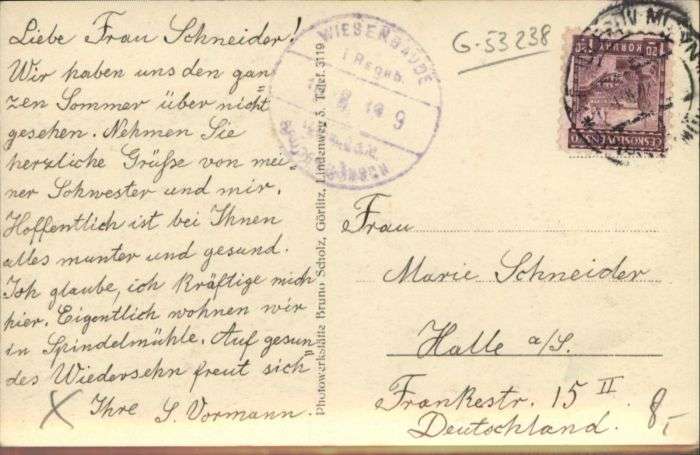 Liebe Frau Schneider!
Wir haben uns den gan
zen Sommer über nicht
gesehen. Nehmen Sie
herzliche Grüße von mei
ner Schwester und mir.
Hoffentlich ist bei Ihnen
alles munter und gesund.
Ich glaube, ich kräftige mich
hier. Eigentlich wohnen wir
in Spindelmühle. Auf gesun
des Wiedersehn freut sich
Ihre S. Vormann.
Photowerkstätte Bruno Scholz, Görlitz, Lindenweg 5. Telef. 3119
WIESENBAUDE
i. Rsgeb.
G-53238
1.20 KORUNY 1.20
ČESKOSLOVENSKO
Frau
Marie Schneider
Halle a/S.
Frankestr. 15 II
Deutschland.
8,-